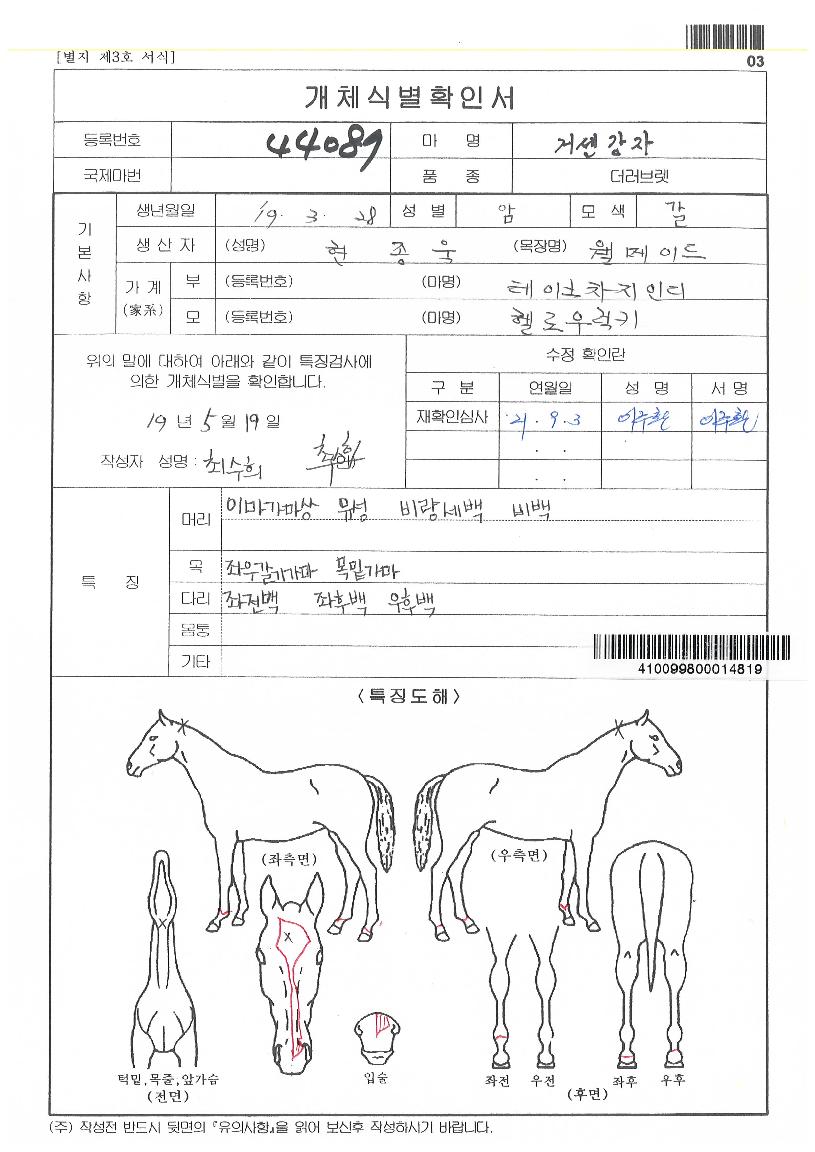 03
[별지 제3호 서식]
개체식별확인서
등록번호 44089 마 명 거센강자
국제마번 품 종 더러브렛
기본사항
생년월일 19. 3. 28 성 별 암 모 색 갈
생 산 자 (성명) 현 종 욱 (목장명) 월메이드
가 계 (家系) 부 (등록번호) (마명) 테이크차지인디
모 (등록번호) (마명) 헬로우럭키
위의 말에 대하여 아래와 같이 특징검사에
의한 개체식별을 확인합니다.
19 년 5 월 19 일
작성자 성명 : 최수희
수정 확인란
구 분 연월일 성 명 서 명
재확인심사 21. 9. 3 이주환 이주환
. .
. .
특 징
머리 이마가마상 유성 비량세백 비백
목 좌우갈기가마 목밑가마
다리 좌전백 좌후백 우후백
몸통
기타
410099800014819
<특징도해>
(좌측면) (우측면)
턱밑,목줄,앞가슴
(전면)
입술
좌전 우전 좌후 우후
(후면)
(주) 작성전 반드시 뒷면의 『유의사항』을 읽어 보신후 작성하시기 바랍니다.